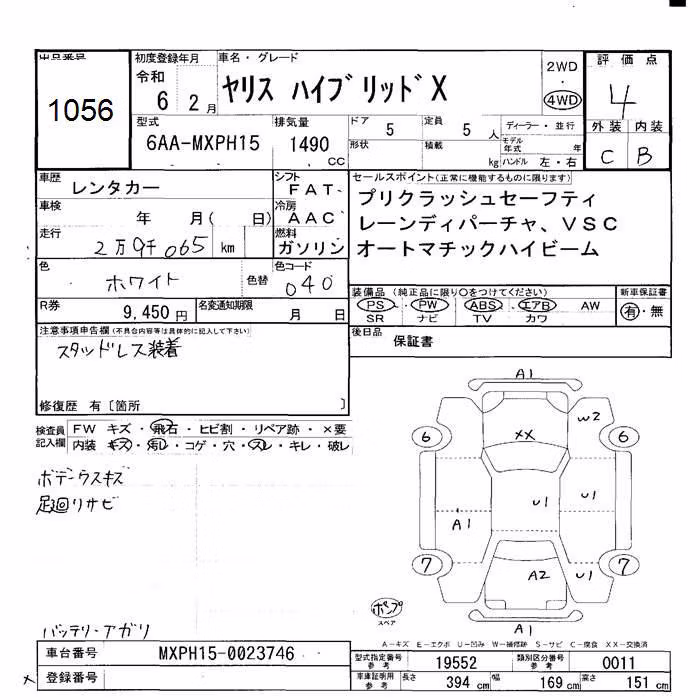 出品番号 初度登録年月 車名・グレード 評価点
1056 令和 6 2月 ヤリス ハイブリッド X 2WD・4WD 4
外装 内装
C B
型式 排気量 ドア 5 定員 5人 ディーラー・並行
6AA-MXPH15 1490 CC 形状 積載 kg モデル年式 年
ハンドル 左・右
車歴 レンタカー シフト FAT
セールスポイント(正常に機能するものに限ります)
車検 年 月( 日) 冷房 AAC
プリクラッシュセーフティ
レーンディパーチャ、VSC
オートマチックハイビーム
走行 2万9千065 km 燃料 ガソリン
色 ホワイト 色替 色コード 040
装備品(純正品に限り○をつけてください) 新車保証書
PS・PW・ABS・エアB AW 有・無
SR ナビ TV カワ
R券 9,450円 名変通知期限 月 日
後日品 保証書
注意事項申告欄(不具合内容等は具体的に記入して下さい)
スタッドレス装着
修復歴 有〔箇所 〕
検査員記入欄 FW キズ・飛石・ヒビ割・リペア跡・×要
内装 キズ・汚レ・コゲ・穴・スレ・キレ・破レ
足廻リサビ
バッテリーアガリ
A1
W2
6 XX 6
U1 U1
A1
7 A2 U1 7
A1
スペア
A-キズ E-エクボ U-凹み W-補修跡 S-サビ C-腐食 XX-交換済
車台番号 MXPH15-0023746
登録番号
型式指定番号 参考 19552 類別区分番号 参考 0011
車庫証明用 参考 長さ 394 cm 幅 169 cm 高さ 151 cm